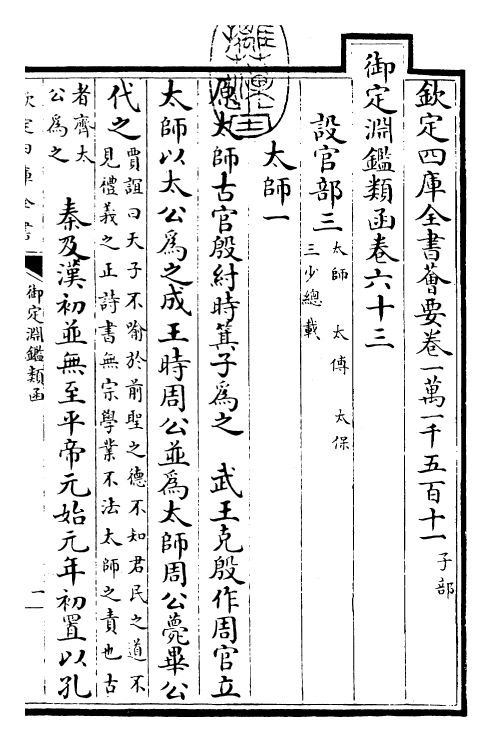 欽定四庫全書薈要卷一萬一千五百十一 子部
御定淵鑑類函卷六十三
設官部三 太師 太傅 太保
三少總載
太師一
原太師古官殷紂時箕子為之 武王克殷作周官立
太師以太公為之成王時周公並為太師周公薨畢公
代之 賈誼曰天子不喻於前聖之德不知君民之道不
見禮義之正詩書無宗學業不法太師之責也古
者齊太
公為之 秦及漢初並無至平帝元始元年初置以孔
欽定四庫全書
御定淵鑑類函
一